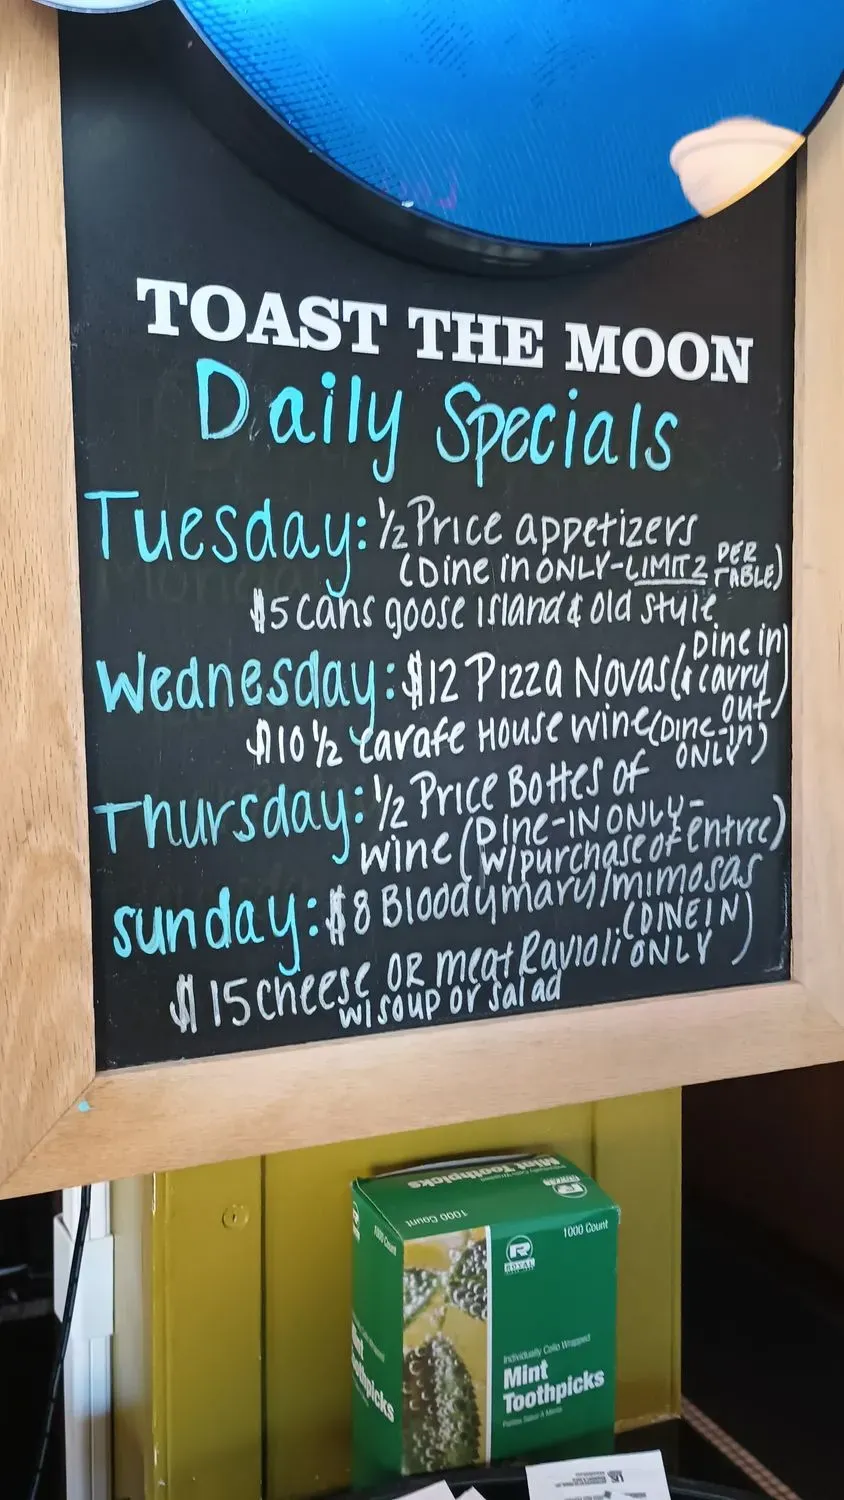 TOAST THE MOON
Daily Specials
Tuesday: 1/2 Price appetizers
(Dine in ONLY-LIMIT 2 PER TABLE)
$5 cans goose island & Old Style
Wednesday: $12 Pizza Novas (Dine in & carry out)
$10 1/2 carafe House wine (Dine-in ONLY)
Thursday: 1/2 Price Bottles of
wine (Dine-IN ONLY-
w/purchase of entree)
Sunday: $8 Bloodymary/mimosas
(DINE IN ONLY)
$15 cheese OR meat Ravioli
w/soup or salad
Mint Toothpicks
1000 Count
1000 Count
R
ROYAL
1000 Count
Individually Cello Wrapped
Mint
Toothpicks
Mint
Toothpicks